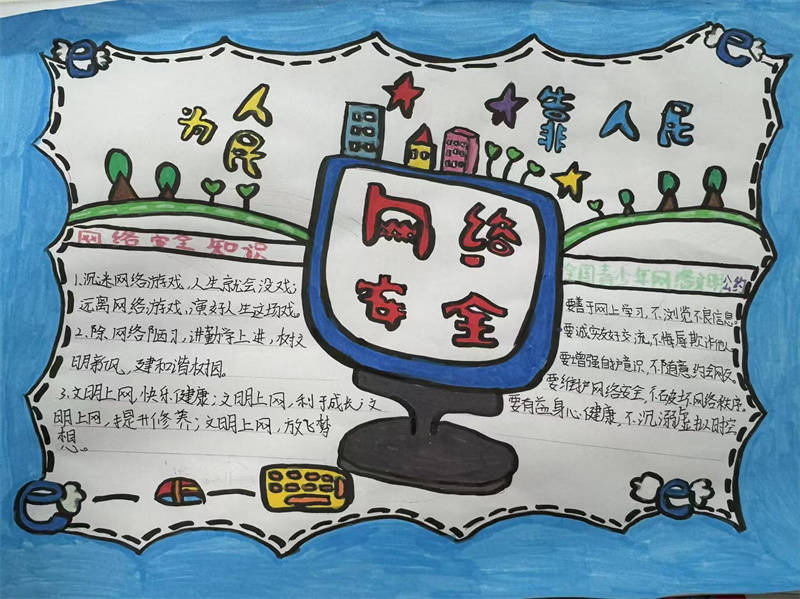 为人民
靠人民
网络
安全
网络安全知识
1.沉迷网络游戏,人生就会没戏;
远离网络游戏,演好人生这场戏。
2.除网络陋习,讲勤学上进,树文
明新风,建和谐校园。
3.文明上网,快乐健康;文明上网,利于成长;文
明上网,提升修养;文明上网,放飞梦
想。
全国青少年网络文明公约
要善于网上学习,不浏览不良信息。
要诚实友好交流,不侮辱欺诈他人
要增强自护意识,不随意约会网友。
要维护网络安全,不破坏网络秩序。
要有益身心健康,不沉溺虚拟时空
e
e
e
e